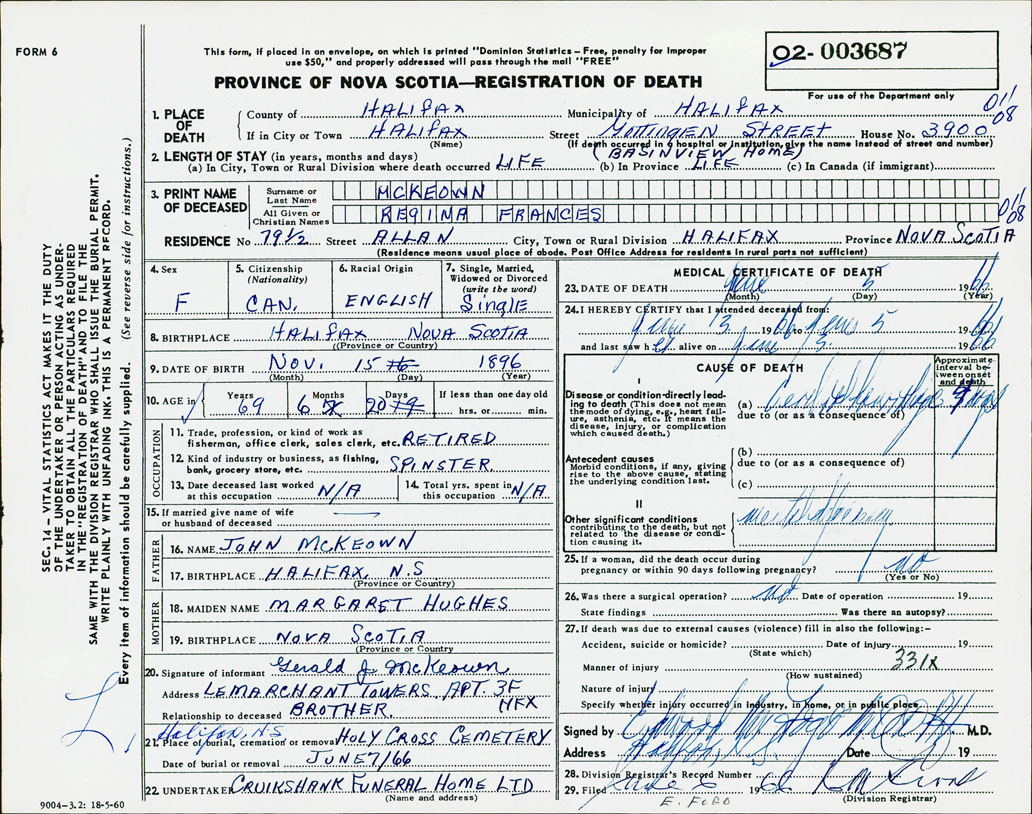 FORM 6
This form, if placed in an envelope, on which is printed "Dominion Statistics – Free, penalty for improper
use $50," and properly addressed will pass through the mail "FREE"
PROVINCE OF NOVA SCOTIA—REGISTRATION OF DEATH
02-003687
For use of the Department only
SEC. 14 – VITAL STATISTICS ACT MAKES IT THE DUTY
OF THE UNDERTAKER OR PERSON ACTING AS UNDER-
TAKER TO OBTAIN ALL THE PARTICULARS REQUIRED
IN THE "REGISTRATION OF DEATH" AND TO FILE THE
SAME WITH THE DIVISION REGISTRAR WHO SHALL ISSUE THE BURIAL PERMIT.
WRITE PLAINLY WITH UNFADING INK. THIS IS A PERMANENT RECORD.
Every item of information should be carefully supplied. (See reverse side for instructions.)
1. PLACE OF DEATH
County of HALIFAX Municipality of HALIFAX 011/08
If in City or Town HALIFAX Street GOTTINGEN STREET House No. 3900
(Name) (If death occurred in a hospital or institution, give the name instead of street and number)
(BASINVIEW HOME)
2. LENGTH OF STAY (in years, months and days)
(a) In City, Town or Rural Division where death occurred LIFE (b) In Province LIFE (c) In Canada (if immigrant)
3. PRINT NAME OF DECEASED
Surname or Last Name MCKEOWN
All Given or Christian Names REGINA FRANCES 011/08
RESIDENCE No 79 1/2 Street ALLAN City, Town or Rural Division HALIFAX Province NOVA SCOTIA
(Residence means usual place of abode. Post Office Address for residents in rural parts not sufficient)
4. Sex F
5. Citizenship (Nationality) CAN.
6. Racial Origin ENGLISH
7. Single, Married, Widowed or Divorced (write the word) Single
8. BIRTHPLACE HALIFAX NOVA SCOTIA
(Province or Country)
9. DATE OF BIRTH NOV. 15 1896
(Month) (Day) (Year)
10. AGE in Years 69 Months 6 Days 20 If less than one day old hrs. or min.
OCCUPATION
11. Trade, profession, or kind of work as
fisherman, office clerk, sales clerk, etc. RETIRED
12. Kind of industry or business, as fishing,
bank, grocery store, etc. SPINSTER.
13. Date deceased last worked at this occupation N/A
14. Total yrs. spent in this occupation N/A
15. If married give name of wife
or husband of deceased —
FATHER
16. NAME JOHN MCKEOWN
17. BIRTHPLACE HALIFAX, N.S
(Province or Country)
MOTHER
18. MAIDEN NAME MARGARET HUGHES
19. BIRTHPLACE NOVA SCOTIA
(Province or Country)
20. Signature of informant Gerald J. McKeown
Address LEMARCHANT TOWERS APT. 3F HFX
Relationship to deceased BROTHER.
Halifax, N.S
21. Place of burial, cremation or removal HOLY CROSS CEMETERY
Date of burial or removal JUNE 7/66
22. UNDERTAKER CRUIKSHANK FUNERAL HOME LTD
(Name and address)
9004—3.2: 18-5-60
MEDICAL CERTIFICATE OF DEATH
23. DATE OF DEATH June 5 1966
(Month) (Day) (Year)
24. I HEREBY CERTIFY that I attended deceased from:
June 3 1966 to June 5 1966
and last saw her alive on June 5 1966
CAUSE OF DEATH
Approximate interval between onset and death
I
Disease or condition directly leading to death (This does not mean
the mode of dying, e.g., heart failure, asthenia, etc. It means the
disease, injury, or complication
which caused death.)
(a)
due to (or as a consequence of)
Antecedent causes
Morbid conditions, if any, giving
rise to the above cause, stating
the underlying condition last.
(b)
due to (or as a consequence of)
(c)
II
Other significant conditions
contributing to the death, but not
related to the disease or condition causing it.
25. If a woman, did the death occur during
pregnancy or within 90 days following pregnancy? no
(Yes or No)
26. Was there a surgical operation? no Date of operation 19
State findings Was there an autopsy?
27. If death was due to external causes (violence) fill in also the following:–
Accident, suicide or homicide? Date of injury 19
(State which)
331X
Manner of injury
(How sustained)
Nature of injury
Specify whether injury occurred in industry, in home, or in public place
Signed by M.D.
Address Halifax, N.S. Date 19
28. Division Registrar's Record Number
29. Filed June 6 1966
(Division Registrar)
E. FORD